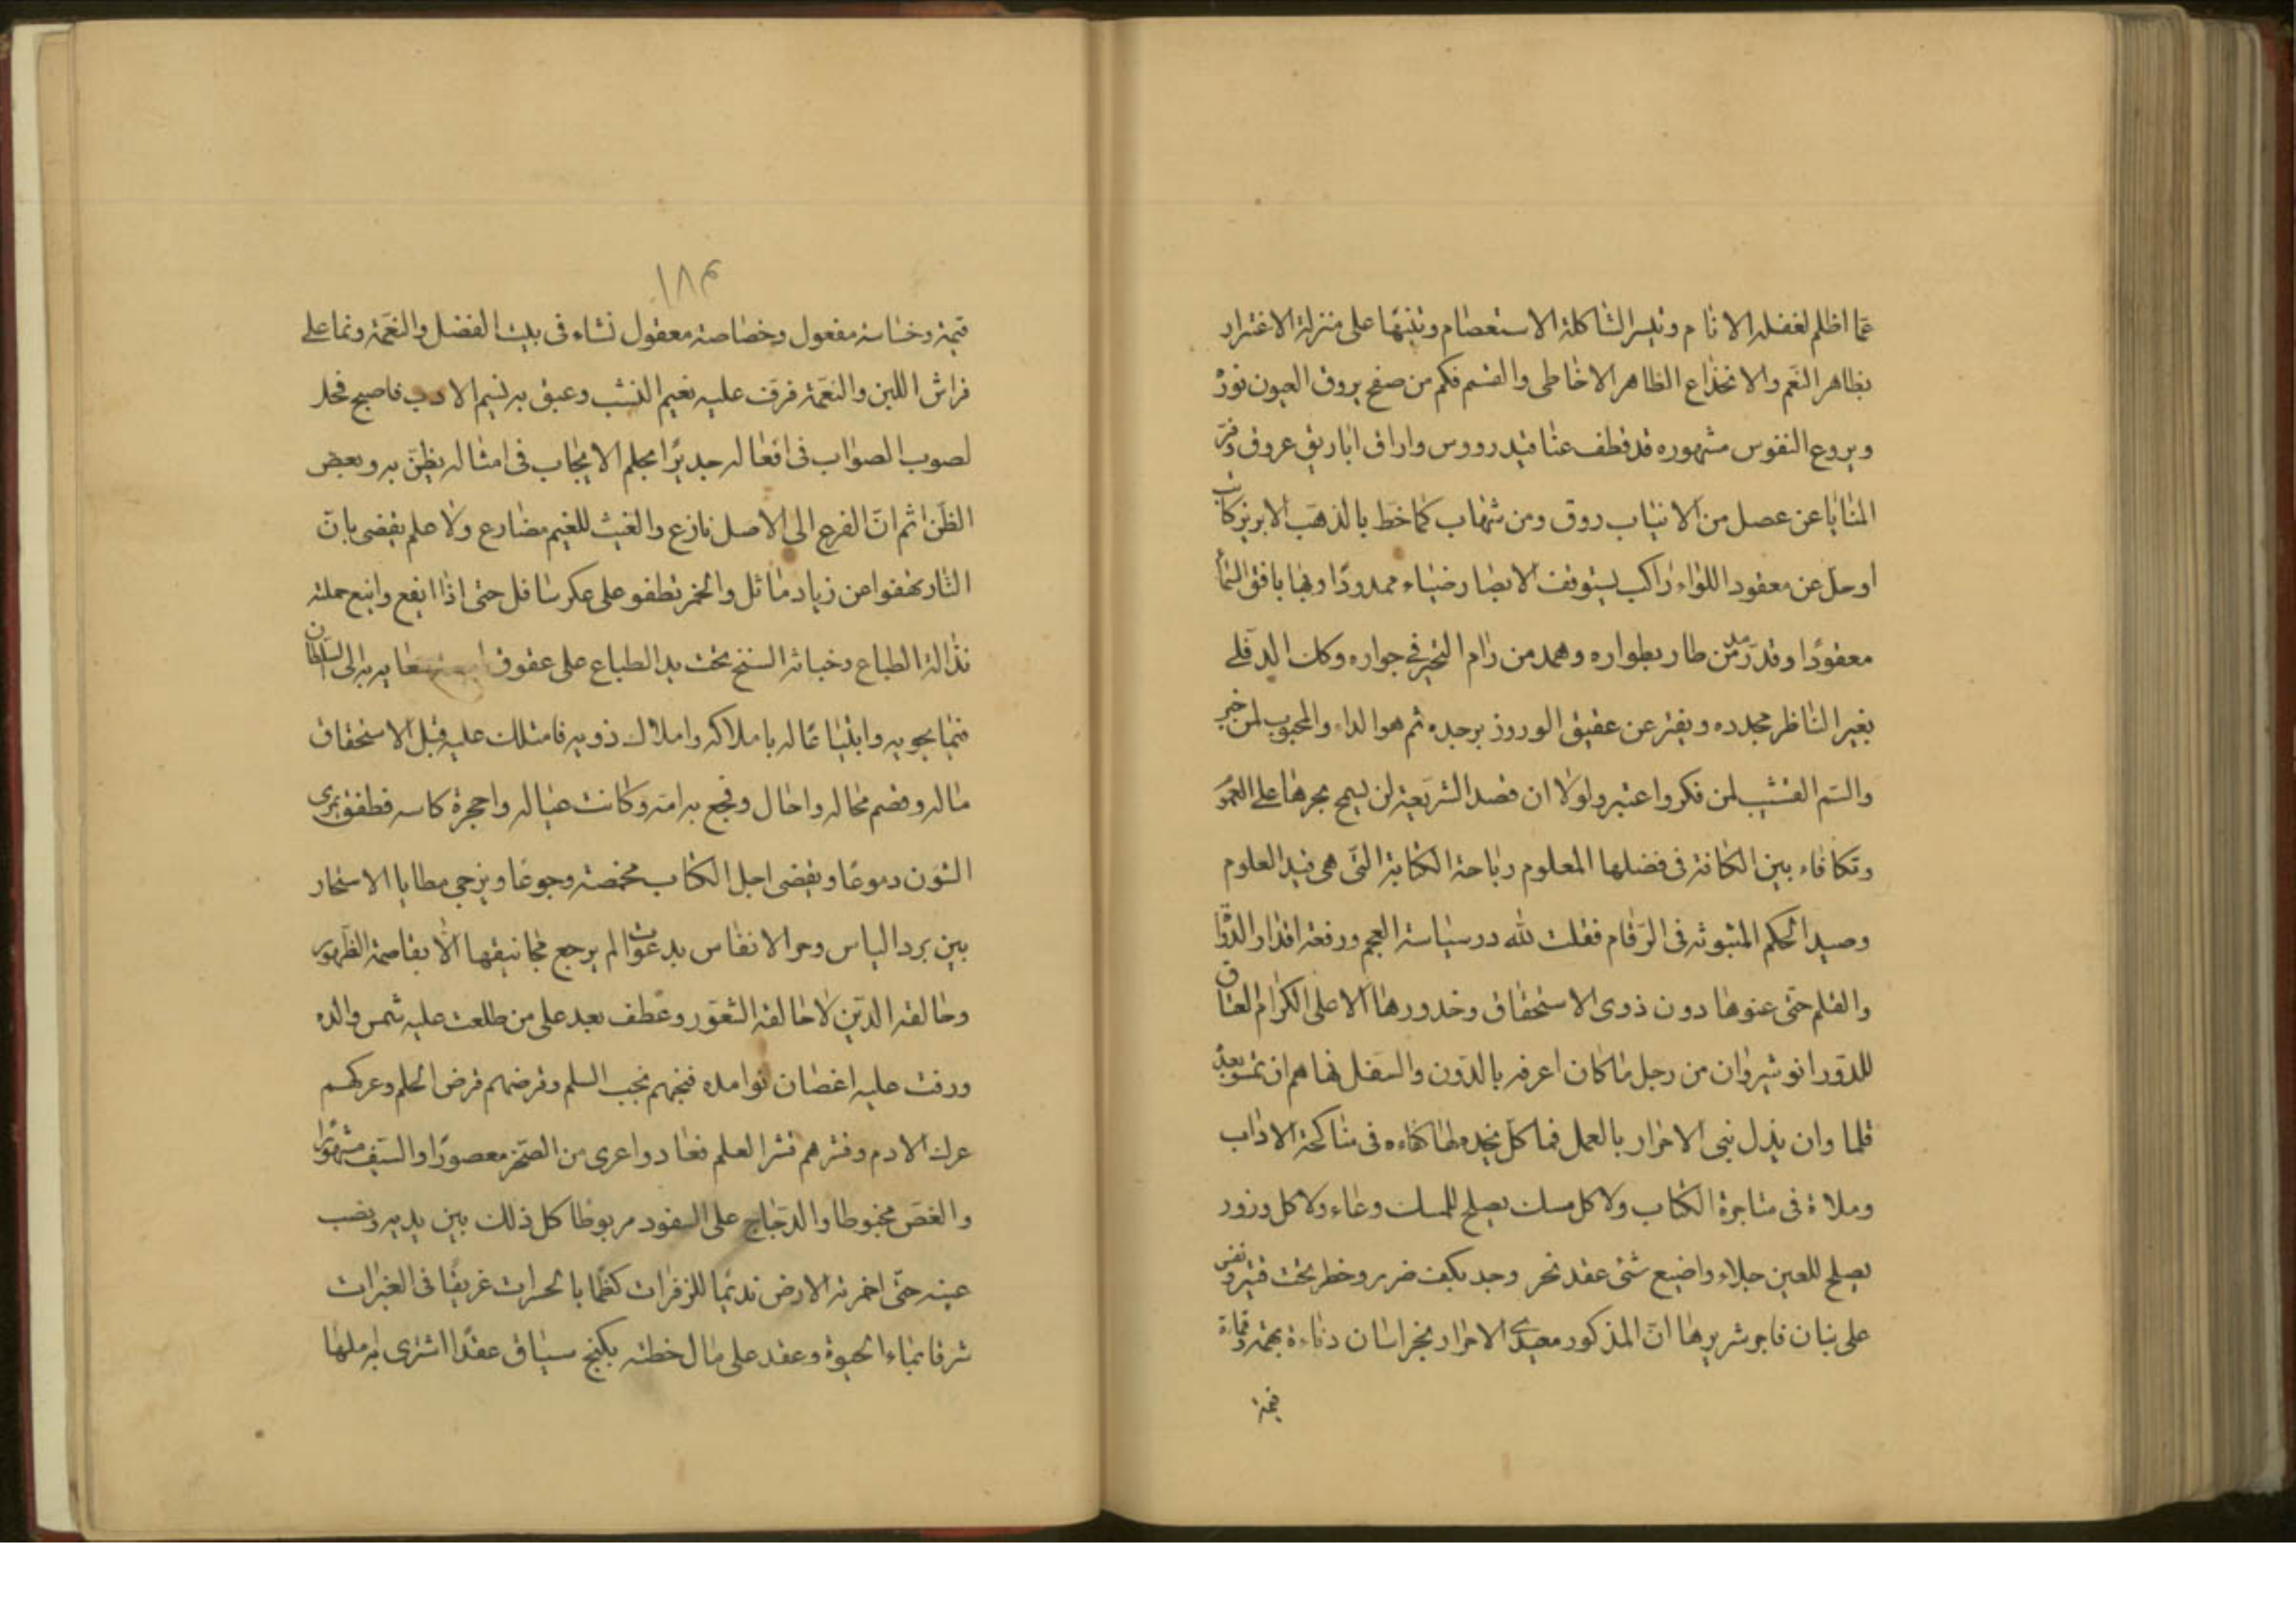 عما اظلم لغفلة الانام وتلبس الشاكلة الاستعصام وتنبها على منزلة الاغترار
بظاهر النعم والانخداع الظاهر الاخاطى والقسم فكم من صفح يروق العيون نور
ويروع النفوس مشهوره قد قطف عناقيد رووس واراق اباريق عروق وفر
المنايا عن عصل من الانياب روق ومن شهاب كما خط بالذهب الابريز كاتب
او حل عن معقود اللواء راكب يستوقف الابصار ضياء ممدودا وبها بافق السماء
معقودا وقد رمد من طار بطواره وهمد من رام التخير فى جواره وكان الدفلى
يغير الناظر مجدده ويفتر عن عقيق الورود زبرجده ثم هو الداء والمحبوب لمن خبر
والسم القشيب لمن فكر واعتبر ولولا ان قصد الشريعة لن يسمح بحرها على العموم
وتكافاء بين الكافة فى فضلها المعلوم رباحة الكتابة التى هى قيد العلوم
وصيد الحكم المثبوثة فى الرقام فقلت لله در سياسة العجم ورفعة اقدار الدوا
والقلم حتى عنوها دون ذوى الاستحقاق وخدورها الا على الكرام العتاق
للدور انوشيروان من رجل ما كان اعرفه بالدون والسفل نهاهم ان يمسوا بعده
قلما وان يذل بنى الاحرار بالعمل فما كل نجيده لها كفاءه فى مناكحة الاداب
وملاة فى متاجرة الكتاب ولا كل مسك يصلح للمسك وعاء ولا كل وزور
يصلح للعين جلاء واضيع شئ عقد نحر وجد بكيف ضرير وخطر تحت فتير ونفس
على بنان فاجر شريرها ان المذكور معيدى الاحرار بخراسان دناءة بهمة وقماءة
قيمة
١٨٣
قيمة وخساسة مفعول وخصاصة معقول نشاء فى بيت الفضل والنعمة ونما على
فراش اللين والنعمة فرقف عليه نعيم النشب وعبق به نسيم الادب فاصبح فحل
لصوب الصواب فى افعاله جديرا بحلم الايجاب فى امثاله يظن به وبعض
الظن اثم ان الفرع الى الاصل نازع والغيث للغيم مضارع ولا علم يقضى بان
النار تهفوا عن زياد ماثل والخمر تطفو على عكر سافل حتى اذا ايفع واتبع حملته
نذالة الطباع وخباثة السنخ تحت يد الطباع على عقوق سعايه به الى السلطان
فيما يحويه وابتياعا له باملاكه واملاك ذويه فامتلك عليه قبل الاستحقاق
ماله وقصم محاله واحال وفجع به امه وكانت عياله واحجرة كاسه فطفق يمرى
الشون دموعا ويقضى اجل الكتاب مخمصة وجوعا ويزجى مطايا الاسحار
بين برد الياس وحر الانفاس بدعوات لم يرجع مجانيقها الا بقاصمة الظهور
وحالقة الدين لا حالقة الشعور وعطف بعد على من طلعت عليه شمس والده
ورفت عليه اغصان نوامده فنجبهم نجب السلم وقرضهم قرض الحلم وعركهم
عرك الادم ونشرهم نشر العلم فعادوا اعرى من الصخر معصورا والسيف مشهورا
والغص مخبوطا والدجاج على السفود مربوطا كل ذلك بين يديه ونصب
عينه حتى اخمرته الارض نديما للزفرات كظما بالحسرات غريقا فى العبرات
شرقا بماء الحيوة وعقد على مال خطته بكنج سياق عقدا اشترى به ملها